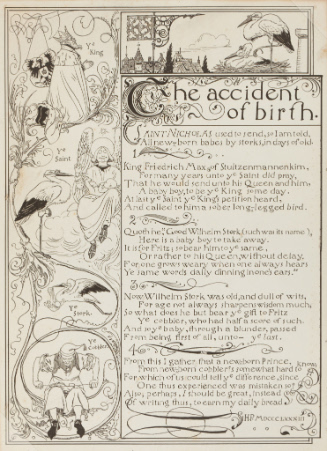 Ye King
Ye Saint
Ye Stork.
Ye Cobbler.
The accident of birth.
SAINT NICHOLAS used to send, so I am told,
All new born babes by storks, in days of old.
1
King Friedrich Max, of Stultzenmannenkim,
For many years unto ye Saint did pray,
That he would send unto his Queen and him,
A baby boy, to be ye King some day.
At last ye Saint ye King's petition heard,
And called to him a sober long-legged bird.
2
Quoth he, "Good Wilhelm Stork (such was its name),
Here is a baby boy to take away.
It is for Fritz; so bear him to ye same,
Or rather to his Queen, without delay.
For one grows weary when one always hears
Ye same words daily dinning in one's ears."
3
Now Wilhelm Stork was old, and dull of wits,
For age not always sharpens wisdom much,
So what does he but bear ye gift to Fritz
Ye cobbler, who had half a score of such.
And so ye baby, through a blunder, passed
From being first of all, unto - ye last.
4
From this I gather that a new-born Prince,
From new-born cobbler's somewhat hard to know;
For which of us could tell ye difference, since
One thus experienced was mistaken so?
Also, perhaps, I should be great, instead
Of writing thus, to earn my daily bread.
HP